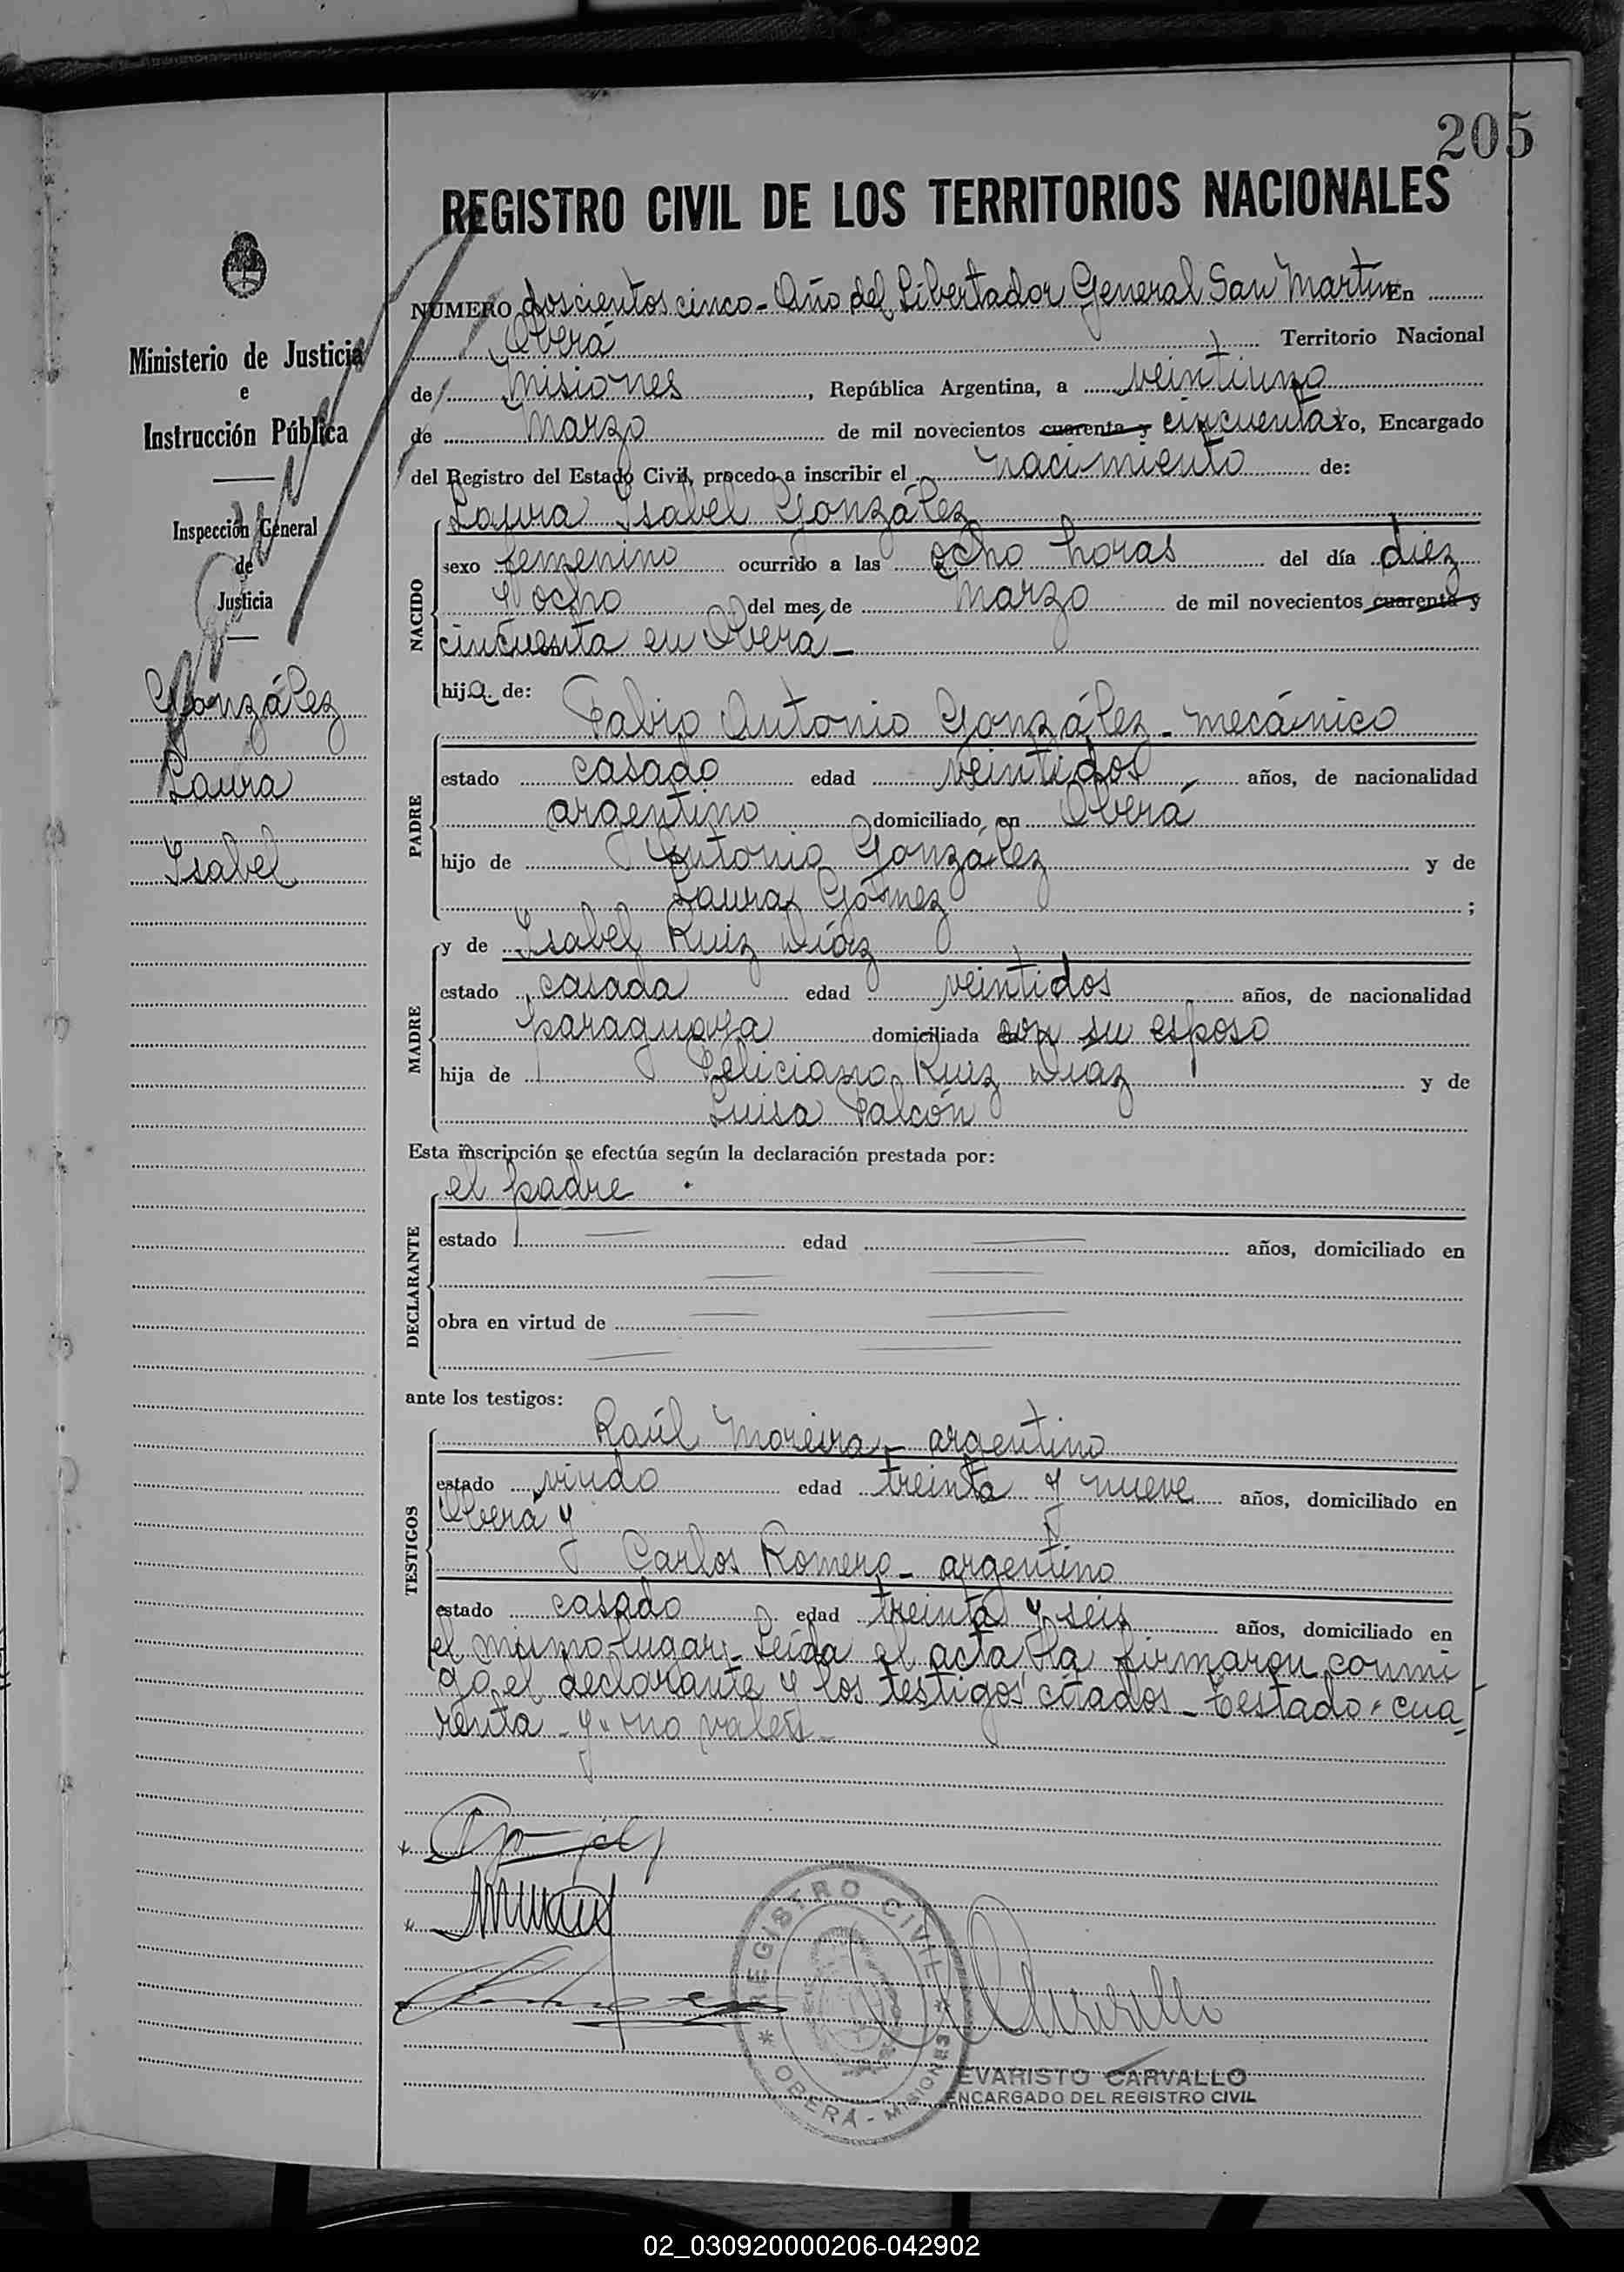 205
REGISTRO CIVIL DE LOS TERRITORIOS NACIONALES
Ministerio de Justicia
e
Instrucción Pública
Inspección General
de
Justicia
González
Laura
Isabel
NUMERO doscientos cinco - Año del Libertador General San Martín En
Oberá Territorio Nacional
de Misiones, República Argentina, a veintiuno
de Marzo de mil novecientos cuarenta y cincuenta Yo, Encargado
del Registro del Estado Civil, procedo a inscribir el nacimiento de:
NACIDO
Laura Isabel González
sexo femenino ocurrido a las ocho horas del día diez
y ocho del mes de Marzo de mil novecientos cuarenta y
cincuenta en Oberá -
hija de:
PADRE
Fabio Antonio González - mecánico
estado casado edad veintidos años, de nacionalidad
argentino domiciliado en Oberá
hijo de Antonio González y de
Laura Gómez ;
MADRE
y de Isabel Ruiz Díaz
estado casada edad veintidos años, de nacionalidad
paraguaya domiciliada con su esposo
hija de Feliciano Ruiz Diaz y de
Luisa Falcón
Esta inscripción se efectúa según la declaración prestada por:
DECLARANTE
el padre
estado edad años, domiciliado en
obra en virtud de
ante los testigos:
TESTIGOS
Raúl Moreira - argentino
estado viudo edad treinta y nueve años, domiciliado en
Oberá y
Carlos Romero - argentino
estado casado edad treinta y seis años, domiciliado en
el mismo lugar - Leída el acta la firmaron conmi
go el declarante y los testigos citados - Testado "cua-
renta - y" no valen -
REGISTRO CIVIL
* OBERÁ - MISIONES *
EVARISTO CARVALLO
ENCARGADO DEL REGISTRO CIVIL
02_030920000206-042902